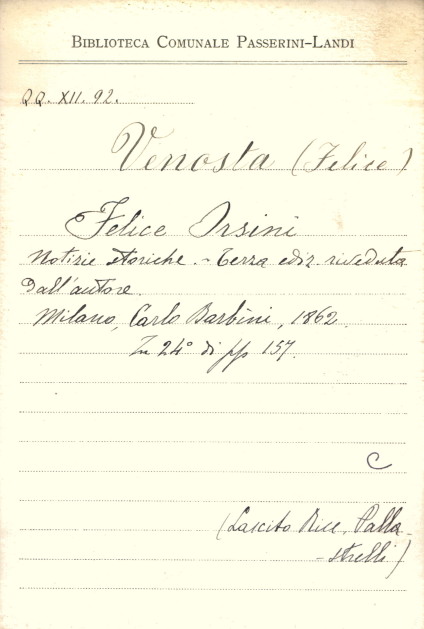 BIBLIOTECA COMUNALE PASSERINI-LANDI
QQ. XII. 92.
Venosta (Felice)
Felice Orsini
Notizie storiche. - Terza ediz. riveduta
dall'autore.
Milano, Carlo Barbini, 1862.
In 24° di pp 157.
C
(Lascito Ricc. Palla-
-strelli)